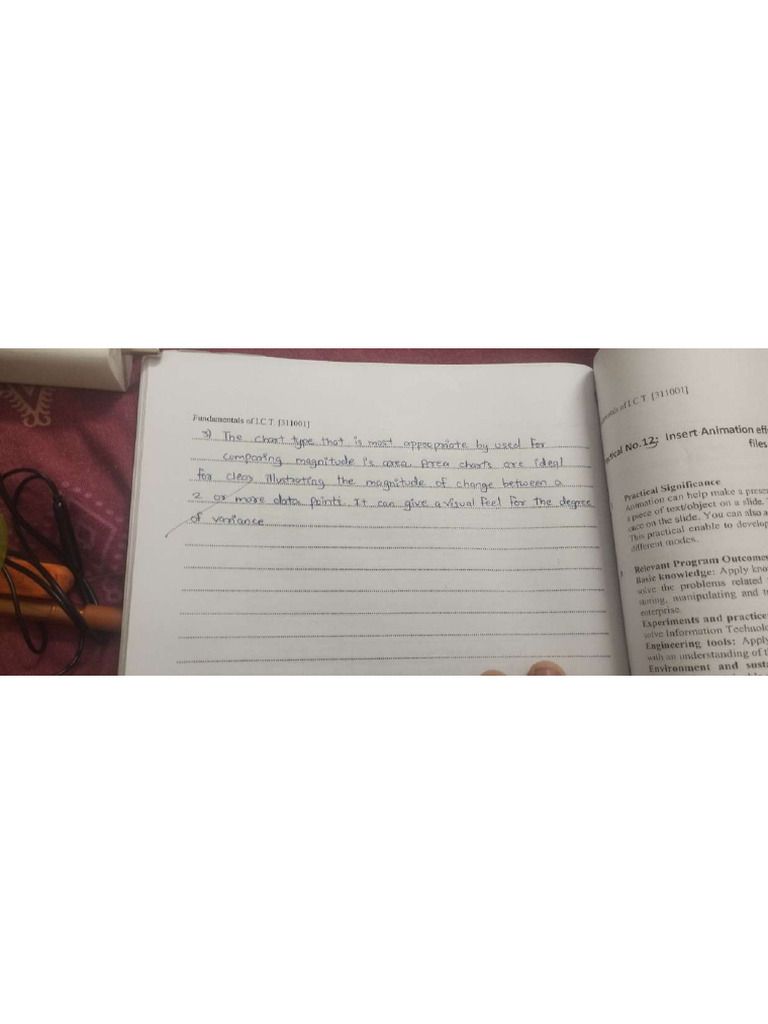 Fundamentals of I.C.T. [311001]
3) The chart type that is most appropriate by used for
comparing magnitude is area. Area charts are ideal
for clear illustrating the magnitude of change between a
2 or more data points. It can give a visual feel for the degree
of variance
of I.C T. [311001]
No.12: Insert Animation eff
files
Practical Significance
Animation can help make a prese
a piece of text/object on a slide.
once on the slide. You can also a
This practical enable to develop
different modes.
Relevant Program Outcome
Basic knowledge: Apply kno
solve the problems related
storing, manipulating and
enterprise.
Experiments and practice
solve Information Technolo
Engineering tools: Apply
with an understanding of t
Environment and susta